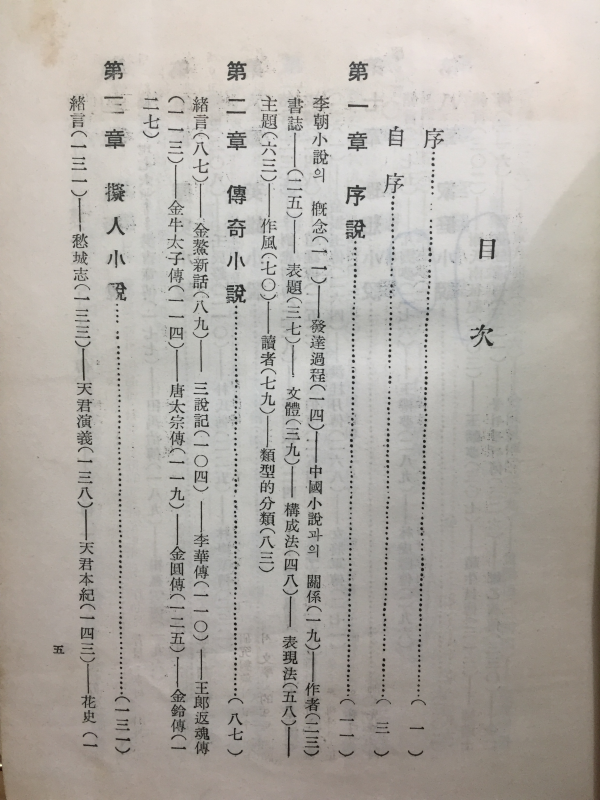 目次
序……(一)
自序……(三)
第一章 序說……(一一)
李朝小說의 槪念(一一)——發達過程(一四)——中國小說과의 關係(一九)——作者(二三)
書誌——(二五)——表題(三七)——文體(三九)——構成法(四八)——表現法(五八)——
主題(六三)——作風(七〇)——讀者(七九)——類型的分類(八三)
第二章 傳奇小說……(八七)
緖言(八七)——金鰲新話(八九)——三說記(一〇四)——李華傳(一一〇)——王郞返魂傳
(一一三)——金牛太子傳(一一四)——唐太宗傳(一一九)——金圓傳(一二五)——金鈴傳(一
二七)
第三章 擬人小說……(一三一)
緖言(一三一)——愁城志(一三三)——天君演義(一三八)——天君本紀(一四三)——花史(一
五